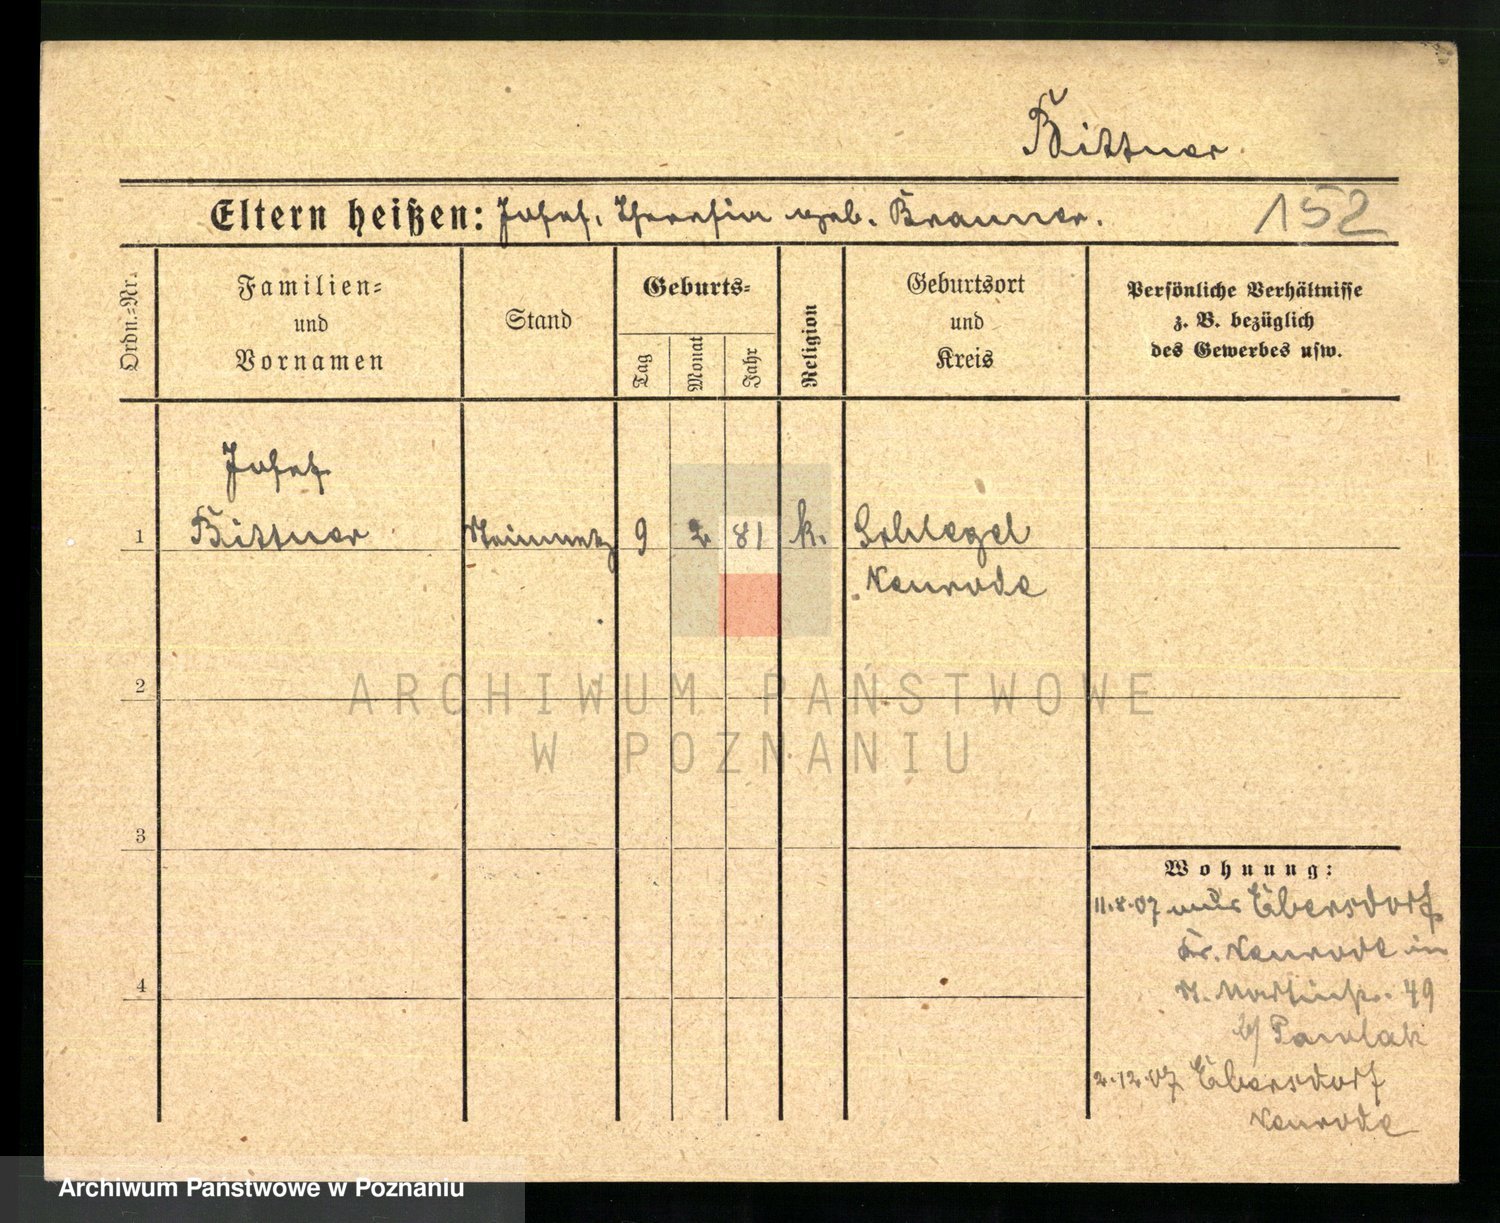 Bittner
Eltern heißen: Josef, Theresia geb. Brauner.
152
Ordn.-Nr.
Familien-
und
Vornamen
Stand
Geburts-
Tag
Monat
Jahr
Religion
Geburtsort
und
Kreis
Persönliche Verhältnisse
z. B. bezüglich
des Gewerbes usw.
Josef
1 Bittner Steinmetz 9 2 81 k. Schlegel
Neurode
2
3
4
Wohnung:
11.8.07 aus Ebersdorf
Kr. Neurode in
St. Martinstr. 49
b/ Pawlak
2.12.07 Ebersdorf
Neurode
ARCHIWUM PAŃSTWOWE
W POZNANIU
Archiwum Państwowe w Poznaniu